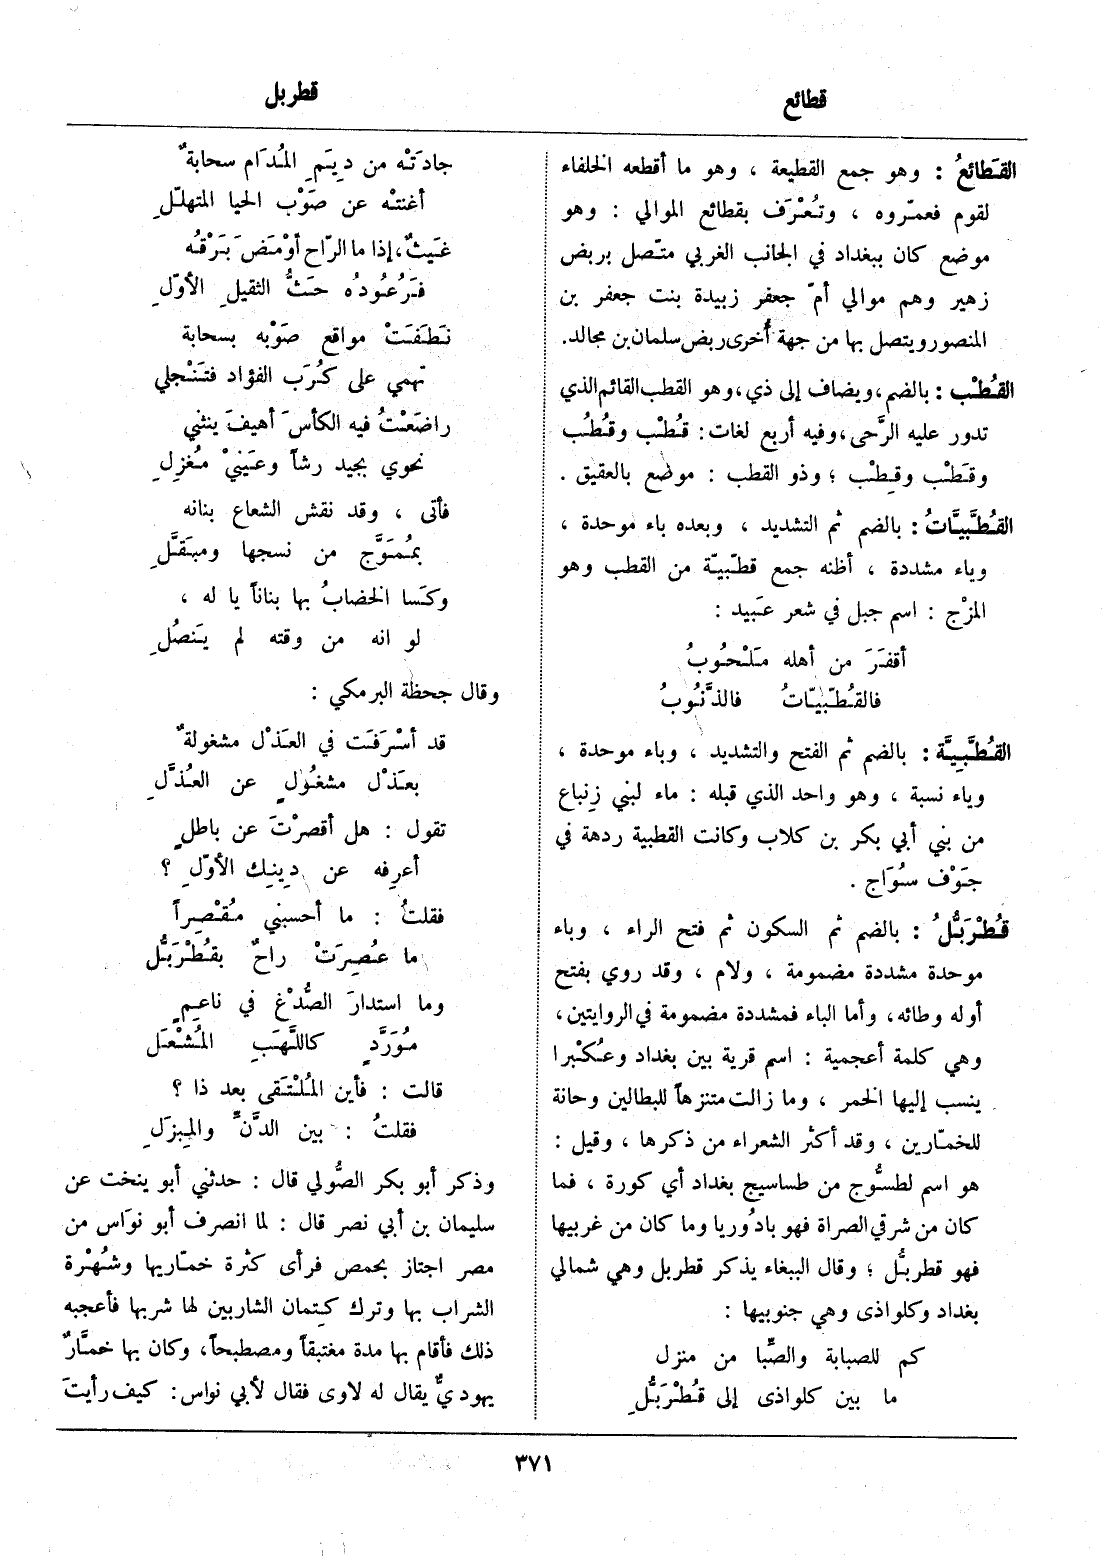 قطائع
قطربل
القَطائعُ : وهو جمع القطيعة ، وهو ما أقطعه الخلفاء
لقوم فعمّروه ، وتُعْرَف بقطائع الموالي : وهو
موضع كان ببغداد في الجانب الغربي متّصل بربض
زهير وهم موالي أمّ جعفر زبيدة بنت جعفر بن
المنصور ويتصل بها من جهة أُخرى ربض سلمان بن مجالد.
القُطْب : بالضم ، ويضاف إلى ذي ، وهو القطب القائم الذي
تدور عليه الرَّحى ، وفيه أربع لغات : قُطْب وقُطُب
وقَطْب وقِطْب ؛ وذو القطب : موضع بالعقيق .
القُطَّبيَّاتُ : بالضم ثم التشديد ، وبعده باء موحدة ،
وياء مشددة ، أظنه جمع قطّبيّة من القطب وهو
المزْج : اسم جبل في شعر عَبيد :
أقفَرَ من أهله مَلْحُوبُ
فالقُطّبيّاتُ فالذَّنُوبُ
القُطَّبِيَّة : بالضم ثم الفتح والتشديد ، وباء موحدة ،
وياء نسبة ، وهو واحد الذي قبله : ماء لبني زِنباع
من بني أبي بكر بن كلاب وكانت القطبية ردهة في
جَوْف سُوَاج .
قُطْرَبُّلُ : بالضم ثم السكون ثم فتح الراء ، وباء
موحدة مشددة مضمومة ، ولام ، وقد روي بفتح
أوله وطائه ، وأما الباء فمشددة مضمومة في الروايتين ،
وهي كلمة أعجمية : اسم قرية بين بغداد وعُكْبرا
ينسب إليها الخمر ، وما زالت متنزهاً للبطالين وحانة
للخمّارين ، وقد أكثر الشعراء من ذكرها ، وقيل :
هو اسم لطسّوج من طساسيج بغداد أي كورة ، فما
كان من شرقي الصراة فهو بادُوريا وما كان من غربيها
فهو قطربُّل ؛ وقال الببغاء يذكر قطربل وهي شمالي
بغداد وكلواذى وهي جنوبيها :
كم للصبابة والصِّبا من منزل
ما بين كلواذى إلى قُطْرَبُّلِ
جادَتْه من دِيَمِ المُدَام سحابةٌ
أغنتْه عن صَوْب الحيا المتهلّلِ
غَيثٌ ، إذا ما الرّاح أوْمَضَ بَرْقُه
فرَعُودُه حَثُّ الثقيل الأوّلِ
نَطَفَتْ مواقع صَوْبه بسحابة
تهمي على كُرَب الفؤاد فتَنْجلي
راضَعْتُ فيه الكأسَ أهيفَ ينثني
نحوي بجيد رشاً وعَينيْ مُغزِلِ
فأتى ، وقد نقش الشعاع بنانه
بمُمَوَّج من نسجها ومبَقَّلِ
وكَسا الخضابُ بها بناناً يا له ،
لو انه من وقته لم يَنصُلِ
وقال جحظة البرمكي :
قد أسْرَفَت في العَذْل مشغولةٌ
بعَذْل مشغُولٍ عن العُذَّلِ
تقول : هل أقصرْتَ عن باطلٍ
أعرفه عن دِينِك الأوّلِ ؟
فقلتُ : ما أحسبني مُقْصِراً
ما عُصِرَتْ راحٌ بقُطْرَبُّل
وما استدارَ الصُّدْغ في ناعمٍ
مُوَرَّدٍ كاللَّهَبِ المُشْعَل
قالت : فأين المُلْتَقى بعد ذا ؟
فقلتُ : بين الدَّنِّ والمِبزَلِ
وذكر أبو بكر الصُّولي قال : حدثني أبو ينخت عن
سليمان بن أبي نصر قال : لما انصرف أبو نوَاس من
مصر اجتاز بحمص فرأى كثرة خمّاريها وشُهْرة
الشراب بها وترك كِتمان الشاربين لها شربها فأعجبه
ذلك فأقام بها مدة مغتبقاً ومصطبحاً ، وكان بها خمّارٌ
يهوديٌّ يقال له لاوى فقال لأبي نواس : كيف رأيتَ
٣٧١